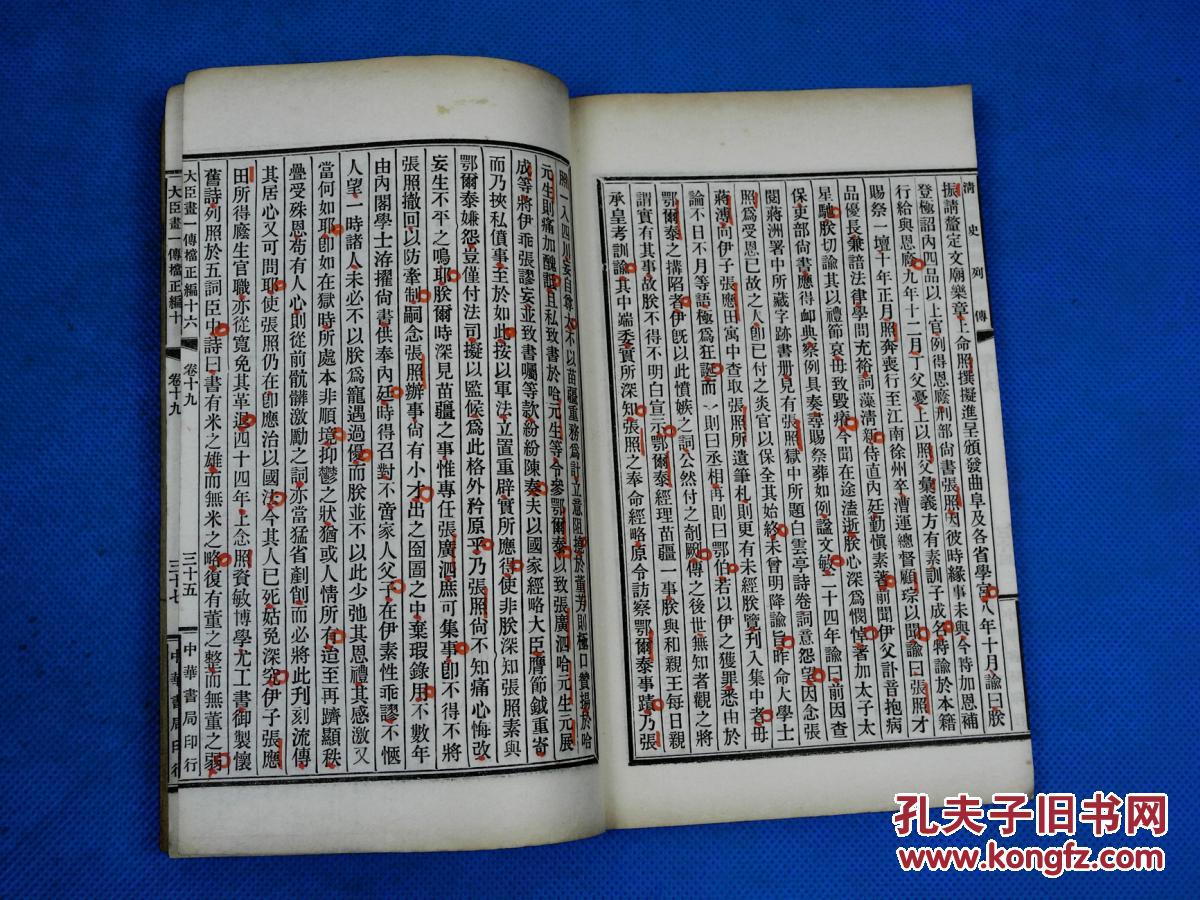 清史列傳
振請釐定文廟樂章上命照撰擬進呈頒發曲阜及各省學宮八年十月諭曰朕
登極詔內四品以上官例得恩廕刑部尚書張照因彼時緣事未與今特加恩補
行給與恩廕九年十二月丁父憂上以照父彙義方有素訓子成名特諭於本籍
賜祭一壇十年正月照奔喪行至江南徐州卒漕運總督顧琮以聞諭曰張照才
品優長兼諳法律學問充裕詞藻淸新侍直內廷勤愼素著前聞伊父訃音抱病
星馳朕切諭其以禮節哀毋致毀瘠今聞在途溘逝朕心深爲憫悼著加太子太
保吏部尚書應得卹典察例具奏尋賜祭葬如例諡文敏二十四年諭曰前因查
閱蔣洲署中所藏字跡書册見有張照獄中所題白雲亭詩卷詞意怨望因念張
照爲受恩已故之人卽已付之炎官以保全其始終未曾明降諭旨昨命大學士
蔣溥向伊子張應田寓中查取張照所遺筆札則更有未經朕覽刋入集中者毋
論不日不月等語極爲狂誕而一則曰丞相再則曰鄂伯若以伊之獲罪悉由於
鄂爾泰之搆陷者伊旣以此憤嫉之詞公然付之剞劂傳之後世無知者觀之將
謂實有其事故朕不得不明白宣示鄂爾泰經理苗疆一事朕與和親王每日親
承皇考訓諭其中端委實所深知張照之奉命經略原令訪察鄂爾泰事蹟乃張
照一入四川妄自尊大不以苗疆重務爲計立意阻撓於董芳則極口贊揚於哈
元生則痛加醜詆且私致書於哈元生等令參鄂爾泰以致張廣泗哈元生元展
成等將伊乖張謬妄並致書囑等款紛紛陳奏夫以國家經略大臣膺節鉞重寄
而乃挾私僨事至於如此按以軍法立置重辟實所應得使非朕深知張照素與
鄂爾泰嫌怨豈僅付法司擬以監候爲此格外矜原乎乃張照尚不知痛心悔改
妄生不平之鳴耶朕爾時深見苗疆之事惟專任張廣泗庶可集事卽不得不將
張照撤回以防牽制嗣念張照辦事尚有小才出之囹圄之中棄瑕錄用不數年
由內閣學士洊擢尚書供奉內廷時得召對不啻家人父子在伊素性乖謬不愜
人望一時諸人未必不以朕爲寵遇過優而朕並不以此少弛其恩禮其感激又
當何如耶卽如在獄時所處本非順境抑鬱之狀猶或人情所有迨至再躋顯秩
疊受殊恩苟有人心則從前骯髒激勵之詞亦當猛省剷創而必將此刋刻流傳
其居心又可問耶使張照仍在卽應治以國法今其人已死姑免深究伊子張應
田所得廕生官職亦從寬免其革退四十四年上念照資敏博學尤工書御製懷
舊詩列照於五詞臣中詩曰書有米之雄而無米之略復有董之整而無董之弱
大臣畫一傳檔正編十六　卷十九　三十五　中華書局印行
大臣畫一傳檔正編十　卷十九　三十七　中華書局印行
孔夫子旧书网
www.kongfz.com